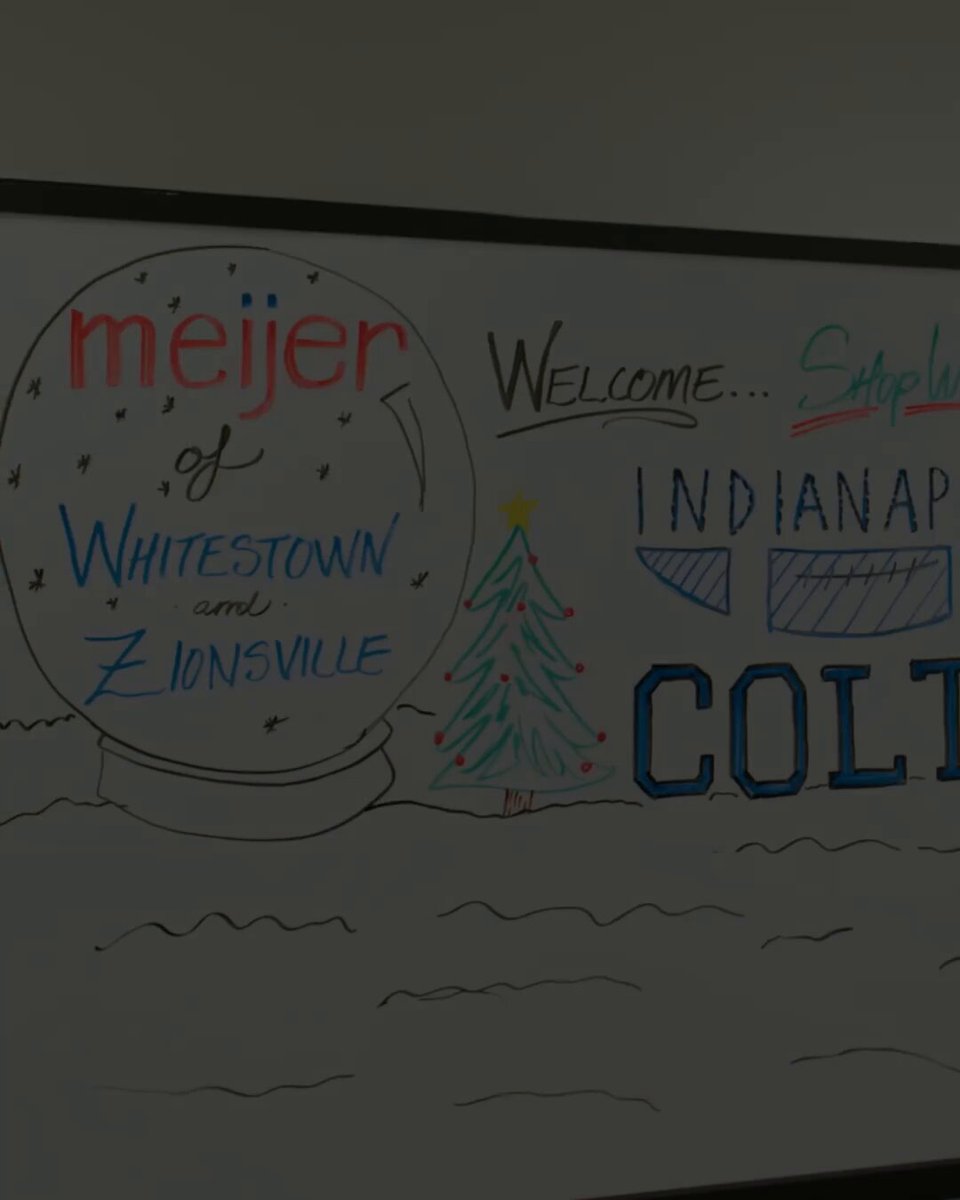 meijer
of
WHITESTOWN
and
ZIONSVILLE
WELCOME...
SHOP W
INDIANAP
COLT